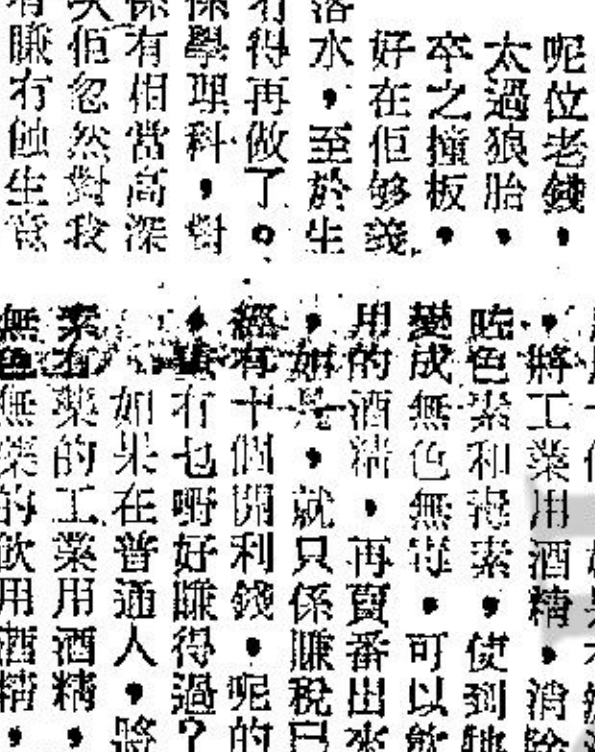 呢位老錢，
太過狼胎，
卒之撞板，
好在佢够義
落水，至於生
冇得再做了。
係學理科，對
係有相當高深
佢忽然對我
賺冇蝕生意
，將工業用酒精，消除
咗色素和毒素，使到牠
變成無色無毒，可以飲
用的酒精，再賣番出來
，如是，就只係賺稅已
經有十個開利錢，呢的
有乜嘢好賺得過？
如果在普通人，將
素有藥的工業用酒精，
無色無藥的飲用酒精，